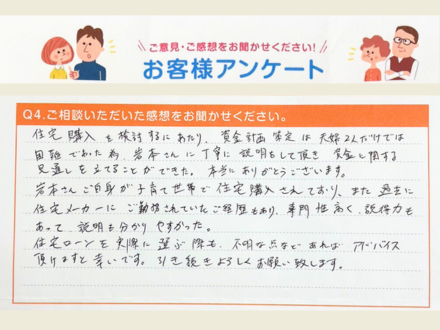 ご意見・ご感想をお聞かせください!
お客様アンケート
Q4.ご相談いただいた感想をお聞かせください。
住宅購入を検討するにあたり、資金計画策定は夫婦2人だけでは
困難であった為、岩本さんに丁寧に説明をして頂き資金に関する
見通しを立てることができた。本当にありがとうございます。
岩本さんご自身が子育て世帯で住宅購入されており、また過去に
住宅メーカーにご勤務されていたご経歴もあり、専門性高く、説得力も
あって、説明も分かりやすかった。
住宅ローンを実際に選ぶ際も、不明な点などあれば アドバイス
頂けますと幸いです。引き続きよろしくお願い致します。